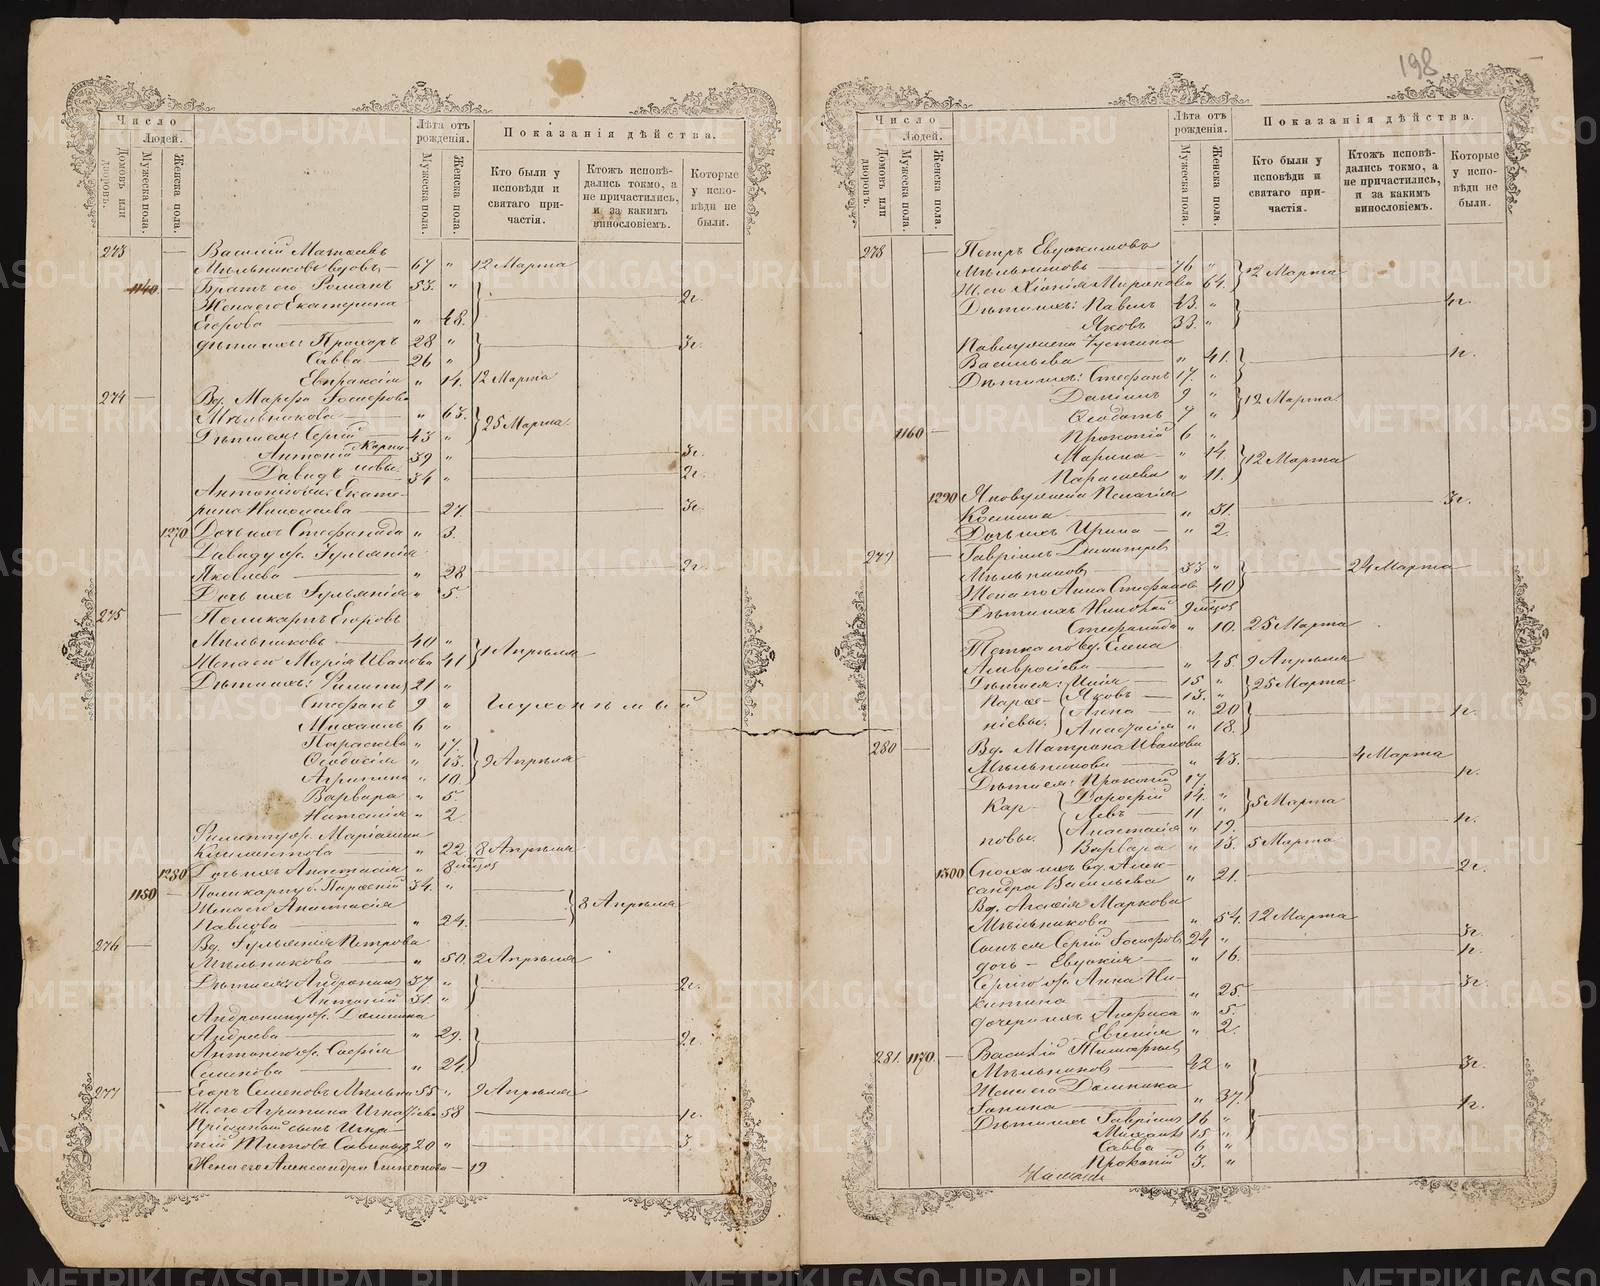 198
Число
Людей.
Домовъ или дворовъ.
Мужеска пола.
Женска пола.
Лѣта отъ рожденія.
Мужеска пола.
Женска пола.
Показанія дѣйства.
Кто были у исповѣди и святаго причастія.
Ктожъ исповѣдались токмо, а не причастились, и за какимъ винословіемъ.
Которые у исповѣди не были.
273 Василій Матѳеевъ
Мѣльниковъ вдовъ — 67 " 12 Марта
1140 Братъ его Романъ 53. "
Жена его Екатерина 2г.
Егорова — " 48.
дѣти ихъ: Прохоръ 28 " 3г.
Савва — 26 "
Евпраксія " 14. 12 Марта
274 Вд. Марѳа Іосифова
Мѣльникова — " 63.
25 Марта
Дѣти ея: Сергій — 43 "
Антоній 39 " 3г.
Давидъ 34 " 2г.
Антонія ж. Екате-
рина Николаева — " 27. 3г.
1270 Дочь ихъ Стефанида " 3.
Давиду ж. Іуліанія
Яковлева — " 28 2г.
Дочь ихъ Іуліанія " 5.
275 Поликарпъ Егоровъ
Мѣльниковъ — 40 "
1 Апрѣля
Жена его Марія Иванова 41
Дѣти ихъ: Филиппъ 21 "
Стефанъ 9 " Глухонѣмый
Михаилъ 6 "
Параскева " 17.
Ѳеодосія " 13. 9 Апрѣля
Агрипина " 10.
Варвара " 5.
Наталія " 2
Филиппу ж. Маріамна
Климентова — " 22. 8 Апрѣля
1280 Дочь ихъ Анастасія " 8 мѣсяц.
1150 Поликарпу б. Парѳеній 34. "
Жена его Анастасія 8 Апрѣля
Павлова — " 24.
276 Вд. Іуліанія Петрова
Мѣльникова — " 50. 2 Апрѣля
Дѣти ея: Андроникъ 37 " 2г.
Антоній 31 "
Андронику ж. Домника
Андреева — " 29. 2г.
Антонію ж. Софія
Семенова — " 24.
277 Егоръ Семеновъ Мѣльни 55 " 9 Апрѣля
Ж. его Агрипина 58 1г.
Пріемный сынъ Игна-
тій Титовъ 20 " 3
Жена его Александра Симеонова — 19
Число
Людей.
Домовъ или дворовъ.
Мужеска пола.
Женска пола.
Лѣта отъ рожденія.
Мужеска пола.
Женска пола.
Показанія дѣйства.
Кто были у исповѣди и святаго причастія.
Ктожъ исповѣдались токмо, а не причастились, и за какимъ винословіемъ.
Которые у исповѣди не были.
278 Петръ Евдокимовъ
Мѣльниковъ — 76 "
12 Марта
Ж. его Хіонія Миронова 64.
Дѣти ихъ: Павелъ 43. " 4г.
Яковъ 33. "
Павлу жена Устина
Васильева — " 41. 1г.
Дѣти ихъ: Стефанъ 17. "
Даніилъ 9 " 12 Марта
Ѳеодотъ 7 "
1160 Прокопій 6 "
Марина — " 14. 12 Марта
Параскева " 11.
1290 Якову жена Пелагія 3г.
Козмина — " 31.
Дочь ихъ Ирина — " 2.
279 Гавріилъ Димитріевъ
Мѣльниковъ — 33 " 24 Марта
Жена его Анна Стефанова 40
Дѣти ихъ Николай 9 мѣсяц.
Стефанида " 10. 25 Марта
Тетка его вд. Елена
Амвросіева — " 45. 9 Апрѣля
Дѣти ея: Илія — 15 " 25 Марта
Яковъ — 13. "
Анна — " 20 1г.
Анастасія " 18.
280 Вд. Матрона Иванова
Мѣльникова — " 43. 4 Марта
Дѣти ея: Прокопій 17. 1г.
Кар- Дороѳей 14. " 5 Марта
Левъ — 11 "
повы. Анастасія " 19. 1г.
Варвара " 13. 5 Марта
1300 Сноха ихъ вд. Алек-
сандра Васильева " 21. 2г.
Вд. Агафія Маркова
Мѣльникова — " 54. 12 Марта
Сынъ ея Сергій Іосифовъ 24 " 3г.
дочь — Евдокія — " 16. 1г.
Сергію ж. Анна Ни-
китина — " 25. 3г.
дочери ихъ Анфиса " 5.
Евгенія " 2.
281. 1170. Василій Тимофеевъ
Мѣльниковъ — 42 " 3г.
Жена его Домника
" 37. 1г.
Дѣти ихъ Гавріилъ 16 "
Михаилъ 15 "
Савва — 6 "
Прокопій 3. "